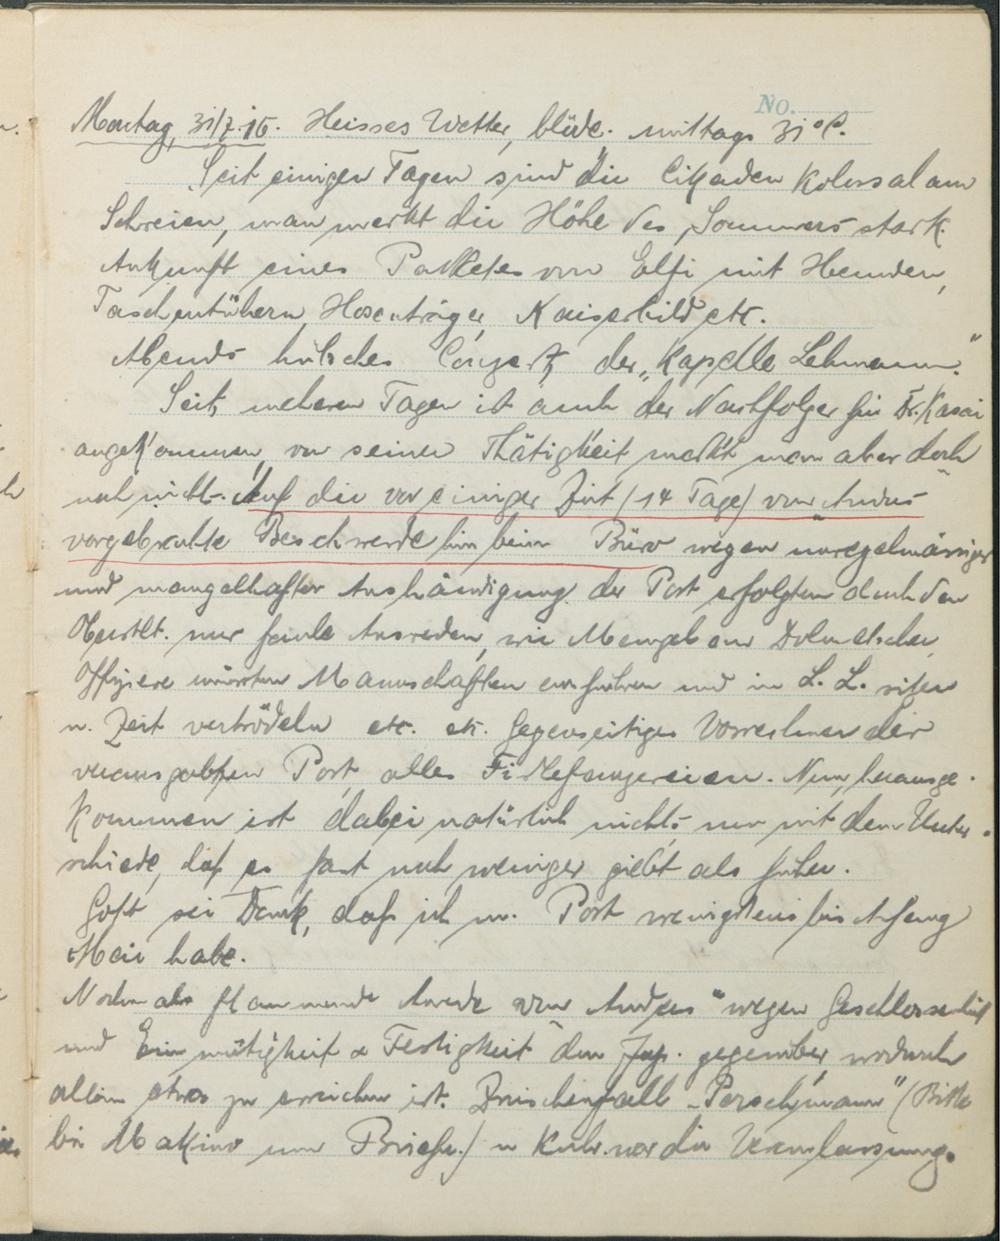 No.
Montag, 31/7.16. Heisses Wetter, blöde. mittags 31°C.
Seit einigen Tagen sind die Cikaden kolossal am
Schreien, man merkt die Höhe des Sommers stark.
Ankunft eines Packetes von Elfi mit Hemden,
Taschentühern, Hosenträger, Kaiserbild etc.
Abends hübsches Conzert der „Kapelle Lehmann".
Seit meheren Tagen ist auch der Nachfolger für Dr. Kasai
angekommen, von seiner Thätigkeit merkt man aber doch
noch nicht. Auf die vor einiger Zeit (14 Tage) von Andus
vorgebrachte Beschwerde hin beim Büro wegen unregelmässiger
und mangelhafter Aushändigung der Post erfolgten durch den
Oberstlt. nur faule Ausreden, wie Mangel an Dolmetscher,
Offiziere würden Mannschaften und in L. L. sitzen
u. Zeit vertrödeln etc. etc. Gegenseitiges Vorrechnen der
verausgabten Post, alles Firlefanzereien. Nun, herausge-
kommen ist dabei natürlich nichts nur mit dem Unter-
schiede, daß es fast noch weniger giebt als früher.
Gott sei Dank, daß ich m. Post wenigstens bis Anfang
Mai habe.
Nochmals flammende Anrede von Anders" wegen Geschlossenheit
und Einmütigkeit & Festigkeit den Jap. gegenüber, wodurch
allein etwas zu erreichen ist. Zwischenfall „Perschmann" (Bitte
bei Makino um Briefe) u Kuhr. war die Veranlassung.